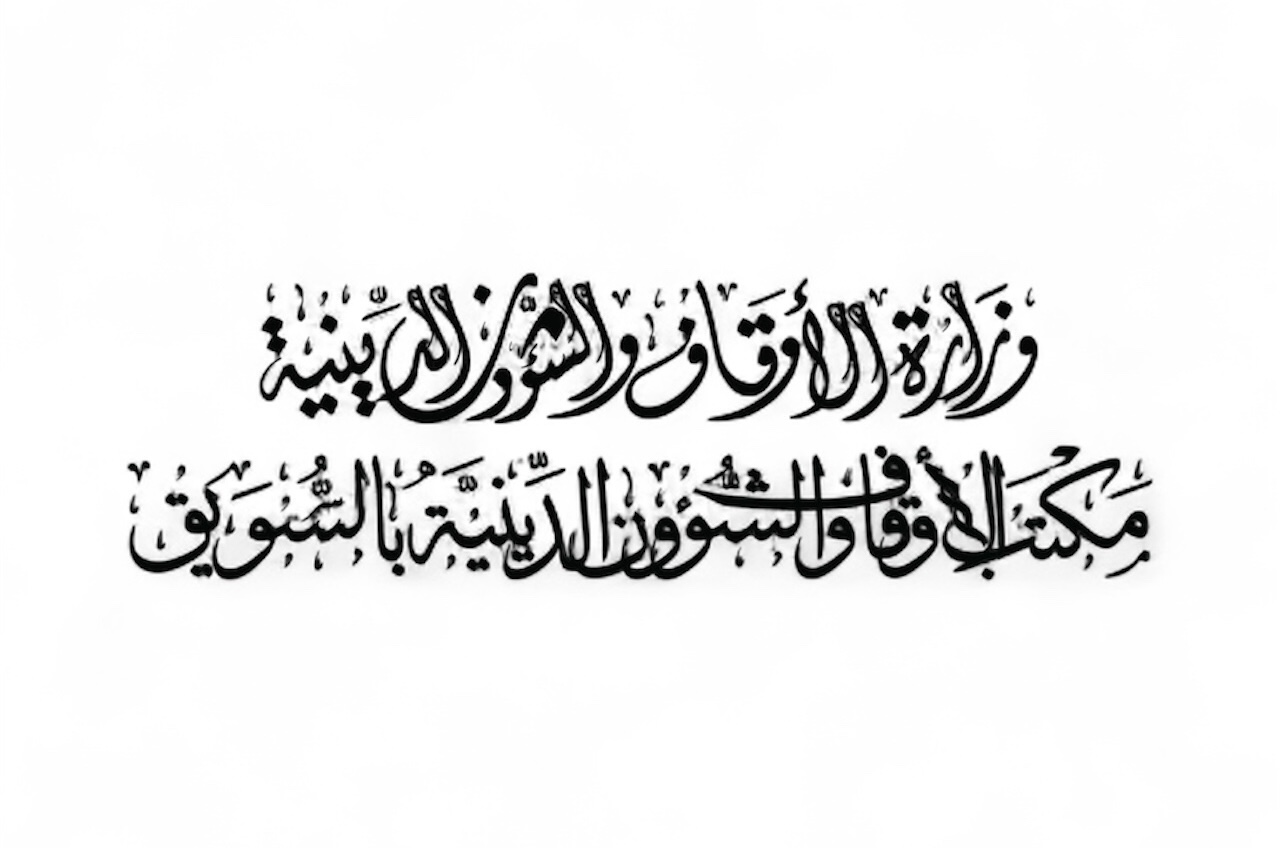 وزارة الأوقاف والشؤون الدينية
مكتب الأوقاف والشؤون الدينية بالسويق